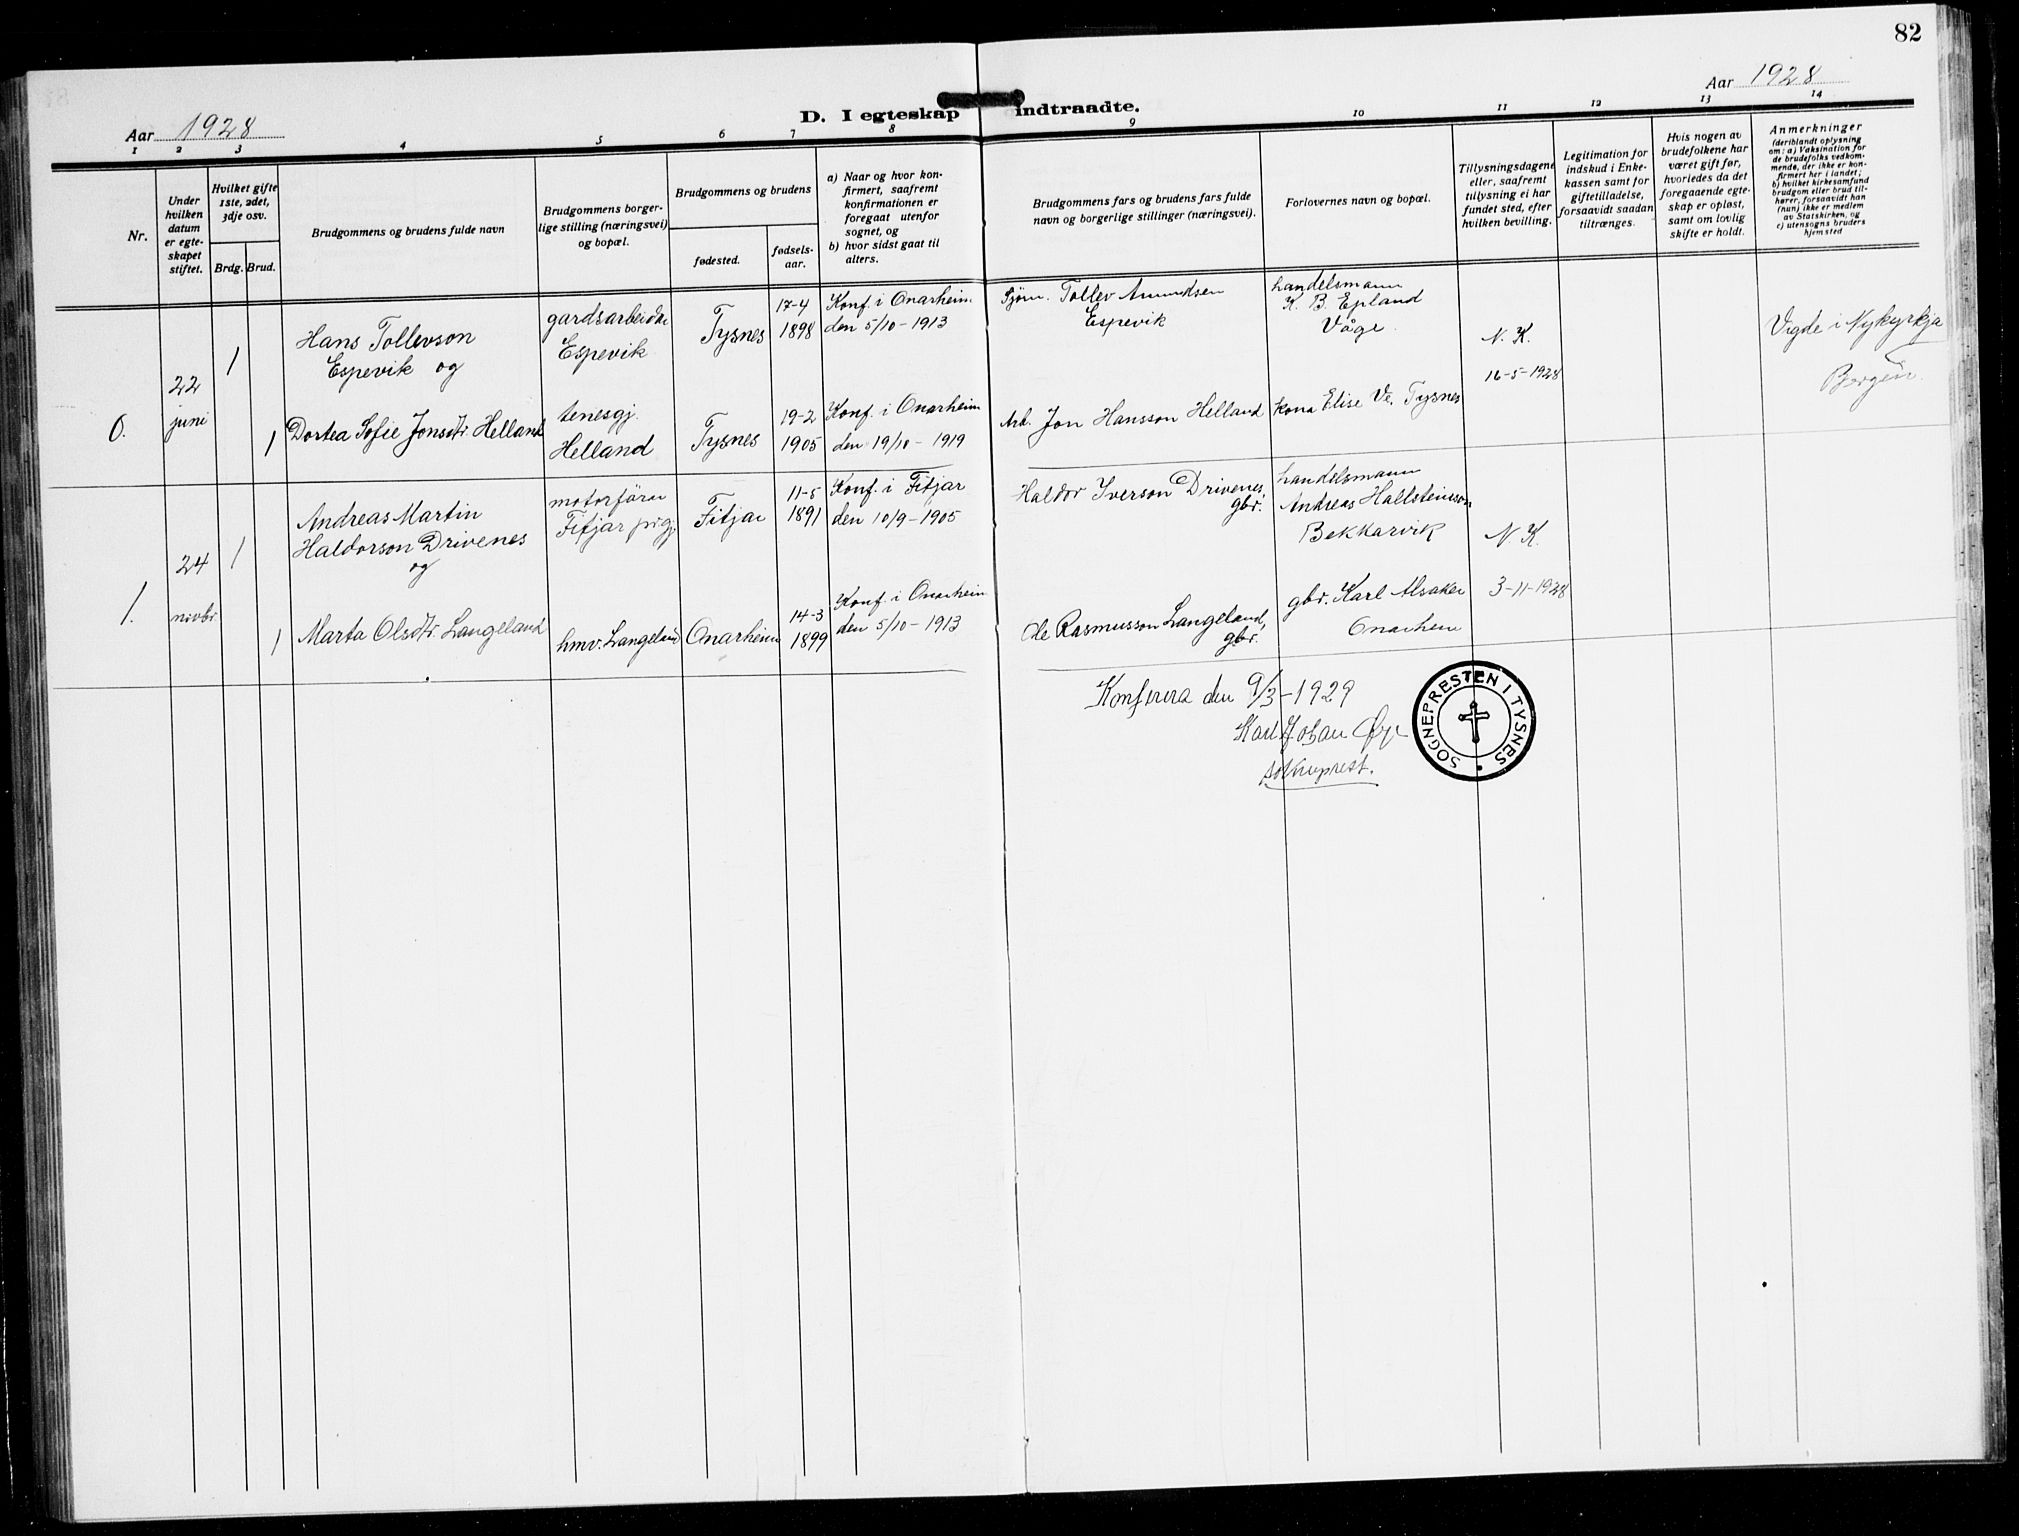 82
Aar 1928
D. I egteskap indtraadte.
Aar 1928
1 2 3 4 5 6 7 8 9 10 11 12 13 14
Nr.
Under
hvilken
datum
er egte-
skapet
stiftet.
Hvilket gifte
1ste, 2det,
3dje osv.
Brdg. Brud.
Brudgommens og brudens fulde navn
Brudgommens borger-
lige stilling (næringsvei)
og bopæl.
Brudgommens og brudens
fødested.
fødsels-
aar.
a) Naar og hvor kon-
firmert, saafremt
konfirmationen er
foregaat utenfor
sognet, og
b) hvor sidst gaat til
alters.
Brudgommens fars og brudens fars fulde
navn og borgerlige stillinger (næringsvei).
Forlovernes navn og bopæl.
Tillysningsdagene
eller, saafremt
tillysning ei har
fundet sted, efter
hvilken bevilling.
Legitimation for
indskud i Enke-
kassen samt for
giftetilladelse,
forsaavidt saadan
tiltrænges.
Hvis nogen av
brudefolkene har
været gift før,
hvorledes da det
foregaaende egte-
skap er opløst,
samt om lovlig
skifte er holdt.
Anmerkninger
(deriblandt oplysning
om: a) Vaksination for
de brudefolks vedkom-
mende, der ikke er kon-
firmert her i landet;
b) hvilket kirkesamfund
brudgom eller brud til-
hører, forsaavidt han
(hun) ikke er medlem
av Statskirken, og
c) utensogns bruders
hjemsted
0.
22
juni
1
Hans Tollevson
Espevik og
gardsarbeidar
Espevik
Tysnes
17-4
1898
Konf. i Onarheim
den 5/10-1913
Sjöm. Tollev Amundsen
Espevik
handelsmann
K. B. Epland
Våge.
N. K.
16-5-1928
Vigde i Nykyrkja
Bergen.
1
Dortea Sofie Jonsdtr. Helland
tenesgj.
Helland
Tysnes
19-2
1905
Konf. i Onarheim
den 19/10-1919
Arb. Jon Hansson Helland
kona Elise Ve, Tysnes
1.
24
novbr
1
Andreas Martin
Haldorson Drivenes
og
motorförar
Fitjar prgj.
Fitjar
11-5
1891
Konf. i Fitjar
den 10/9-1905
Haldor Iverson Drivenes,
gbr.
handelsmann
Andreas Hallsteinsson
Bekkarvik
N. K.
3-11-1928
1
Marta Olsdtr. Langeland
hmv. Langeland
Onarheim
14-3
1899
Konf. i Onarheim
den 5/10-1913
Ole Rasmusson Langeland,
gbr.
gbr. Karl Alsaker
Onarheim
Konferera den 9/3-1929
Karl Johan Øye
sokneprest.
SOGNEPRESTEN I TYSNES